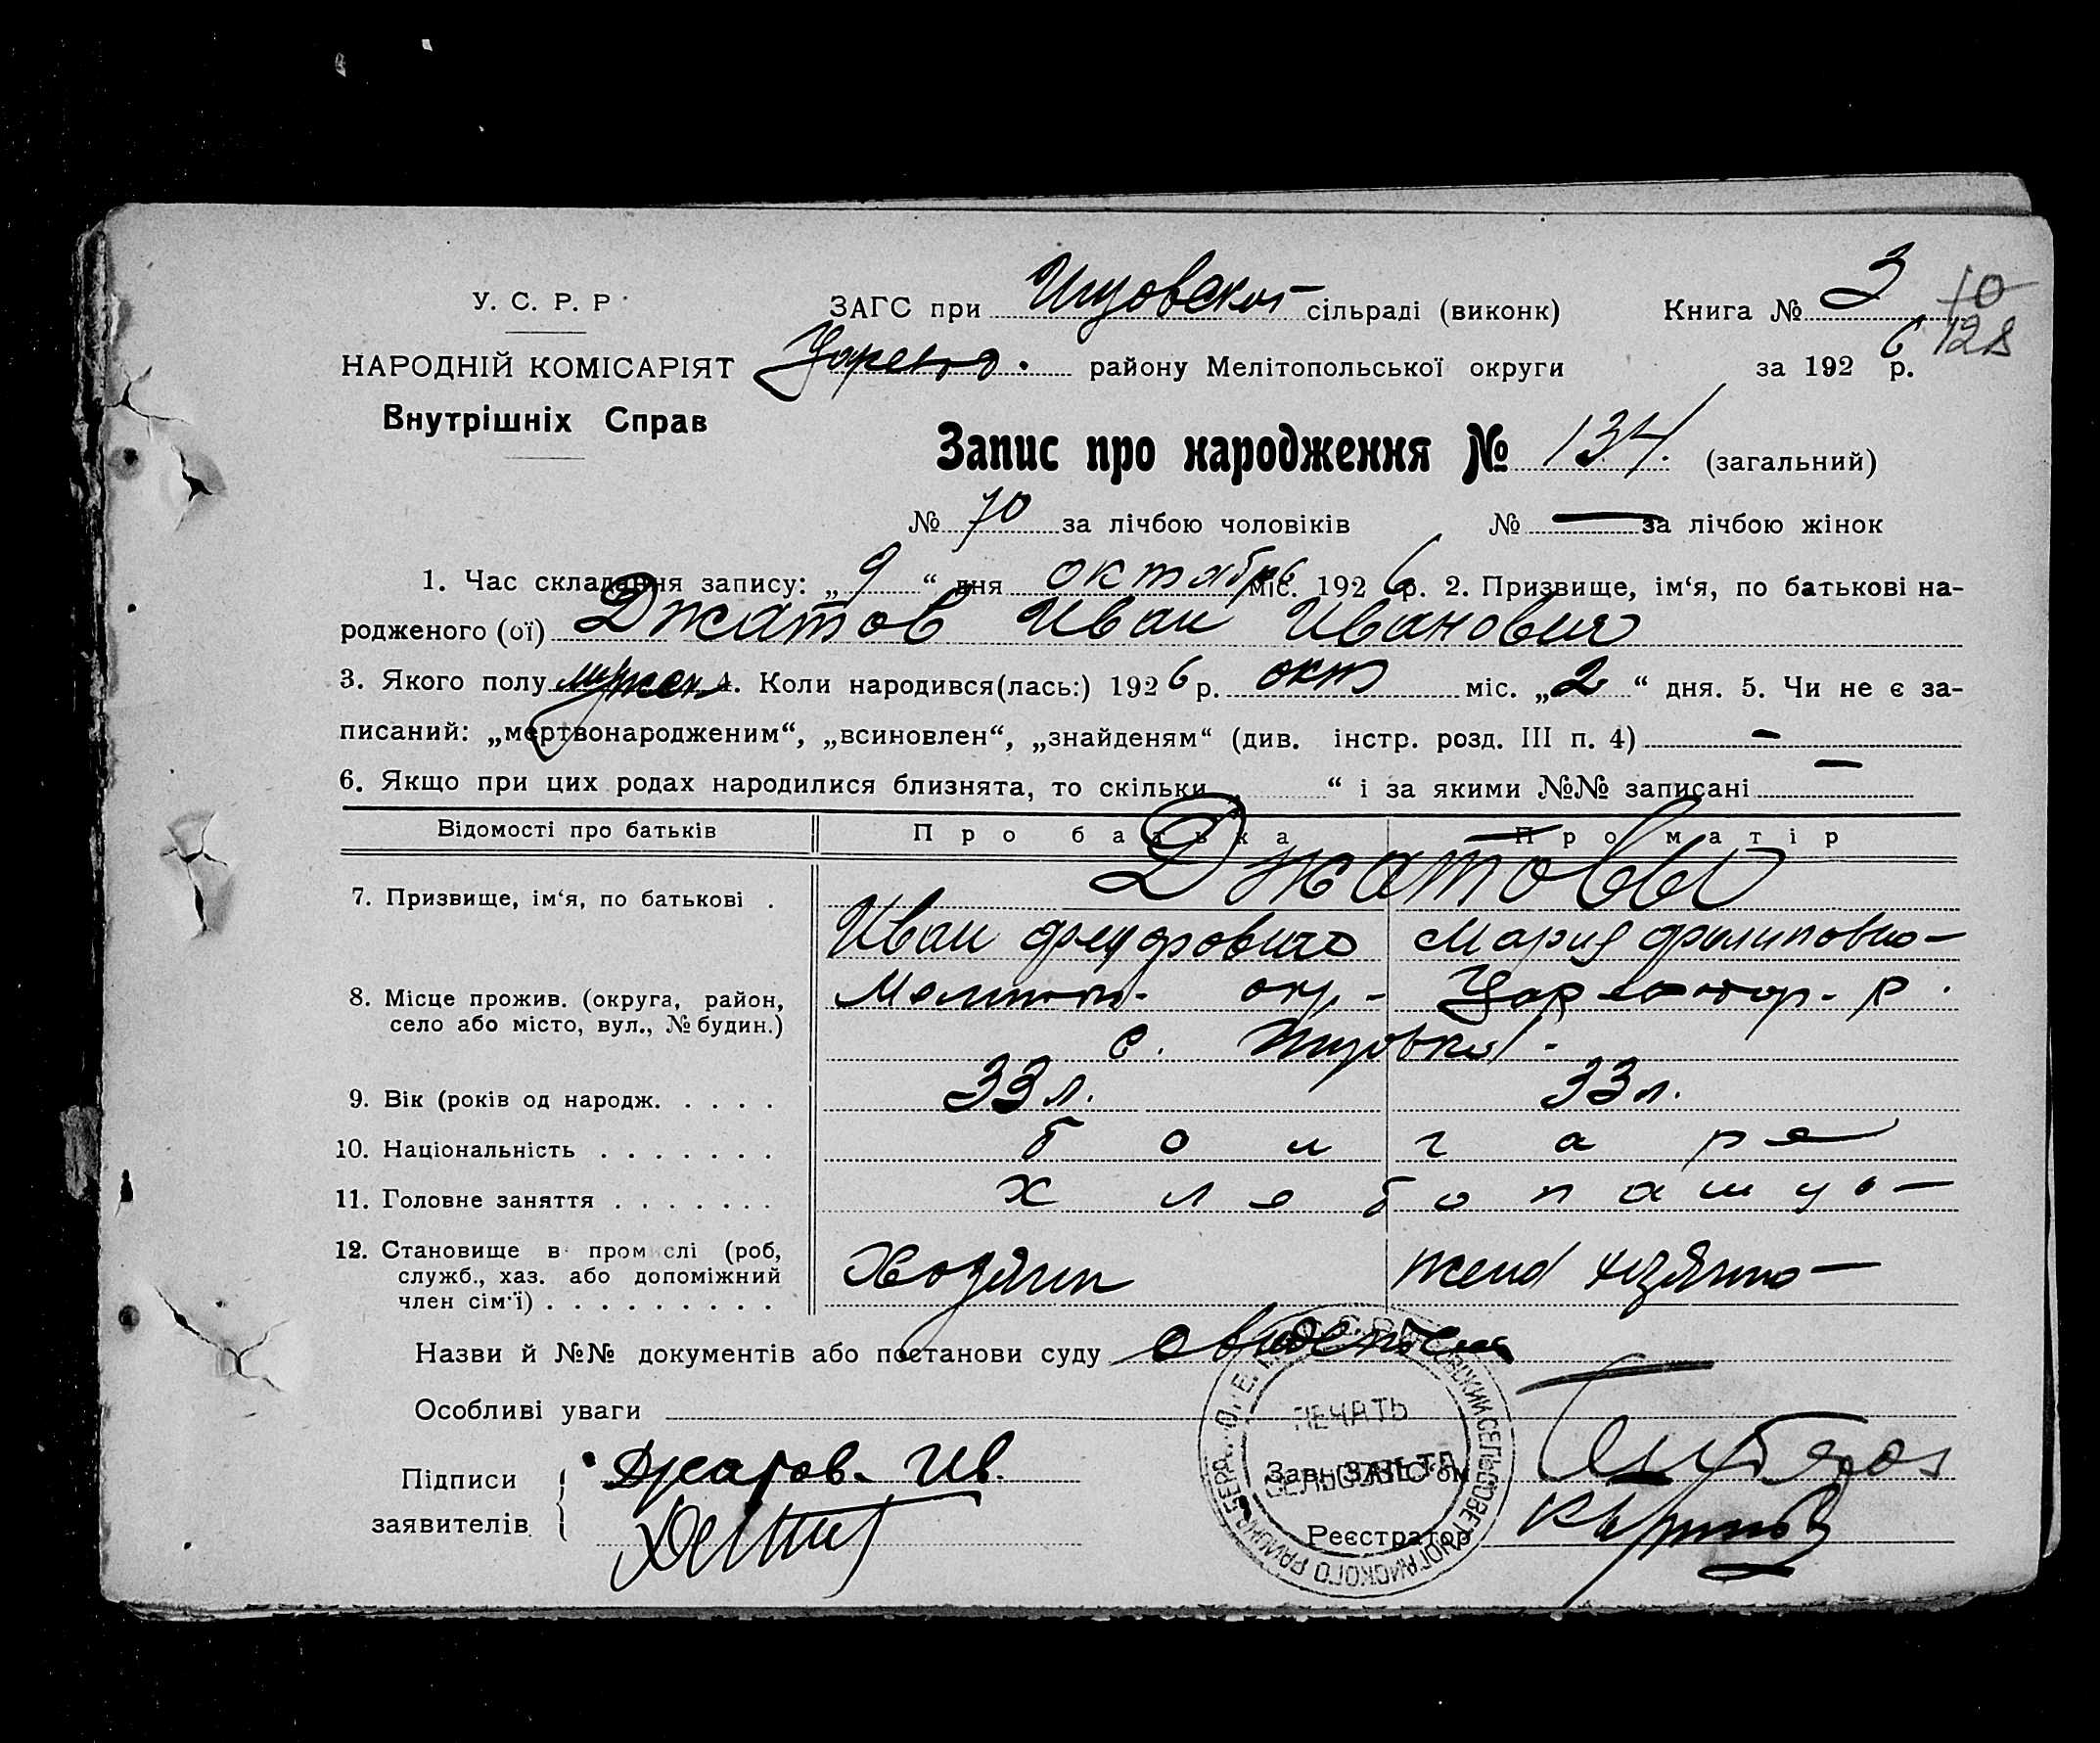 У. С. Р. Р.
НАРОДНІЙ КОМІСАРІЯТ
Внутрішніх Справ
ЗАГС при сільраді (виконк) Книга № 3 70
району Мелітопольської округи за 1926 р. 128
Запис про народження № 134. (загальний)
№ 70 за лічбою чоловіків № — за лічбою жінок
1. Час складання запису: „9“ дня октября міс. 1926 р. 2. Призвище, ім‘я, по батькові на-
родженого (ої) Джатов Иван Иванович
3. Якого полу мужск 4. Коли народився(лась:) 1926 р. окт міс. „2“ дня. 5. Чи не є за-
писаний: „мертвонародженим“, „всиновлен“, „знайденям“ (див. інстр. розд. III п. 4) —
6. Якщо при цих родах народилися близнята, то скільки „ “ і за якими №№ записані —
Відомості про батьків Про батька Про матір
7. Призвище, ім‘я, по батькові . Джатовы
Иван Мария Филиповна
8. Місце прожив. (округа, район, Мелитоп. окр. р.
село або місто, вул., № будин.) с.
9. Вік (років од народж. . . . . 33 л. 33 л.
10. Національність . . . . . . . болгаре
11. Головне заняття . . . . . . . хлебопашцы
12. Становище в промислі (роб, Хозяин жена хозяина
служб., хаз. або допоміжний
член сім‘ї) . . . . . . . . .
Назви й №№ документів або постанови суду
Особливі уваги
ПЕЧАТЬ
Підписи Джатов. Ив. Зав. ЗАГС‘ом
СЕЛЬСОВЕТА
заявителів Реєстратор